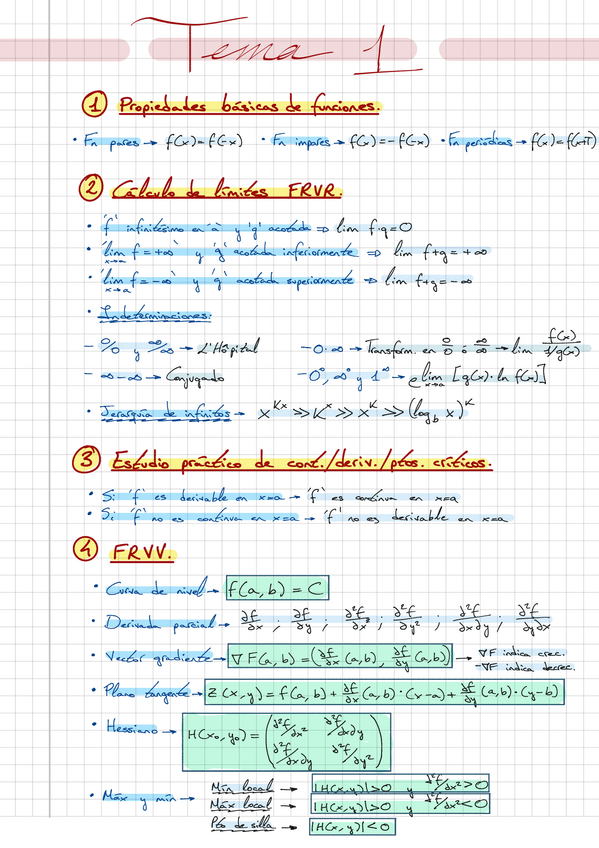 Tema 1
① Propiedades básicas de funciones.
· Fn pares → f(x)=f(-x) · Fn impares → f(x)=-f(-x) · Fn periódicas → f(x)=f(x+T)
② Cálculo de límites FRVR.
· 'f' infinitésimo en 'a' y 'g' acotada ⇒ lim f·g=0
· 'lim f=+∞' y 'g' acotada inferiormente ⇒ lim f+g=+∞
x→a
· 'lim f=-∞' y 'g' acotada superiormente ⇒ lim f+g=-∞
x→a
· Indeterminaciones:
- 0/0 y ∞/∞ → L'Hôpital - 0·∞ → Transform. en 0/0 ó ∞/∞ → lim f(x)/1/g(x)
- ∞-∞ → Conjugado - 0⁰, ∞⁰ y 1^∞ → e lim [g(x)·ln f(x)]
x→a
· Jerarquía de infinitos → x^Kx >> K^x >> x^K >> (log_b x)^K
③ Estudio práctico de cont./deriv./ptos. críticos.
· Si 'f' es derivable en x=a → 'f' es continua en x=a
· Si 'f' no es continua en x=a → 'f' no es derivable en x=a
④ FRVV.
· Curva de nivel → f(a,b) = C
· Derivada parcial → ∂f/∂x ; ∂f/∂y ; ∂²f/∂x² ; ∂²f/∂y² ; ∂²f/∂x∂y ; ∂²f/∂y∂x
· Vector gradiente → ∇F(a,b) = (∂f/∂x (a,b), ∂f/∂y (a,b)) → ∇F indica crec.
-∇F indica decrec.
· Plano tangente → Z(x,y) = f(a,b) + ∂f/∂x (a,b)·(x-a) + ∂f/∂y (a,b)·(y-b)
· Hessiano → H(x₀,y₀) = (∂²f/∂x² ∂²f/∂x∂y
∂²f/∂x∂y ∂²f/∂y²)
· Máx y mín → Mín local → |H(x,y)|>0 y ∂²f/∂x²>0
Máx local → |H(x,y)|>0 y ∂²f/∂x²<0
Pto de silla → |H(x,y)|<0